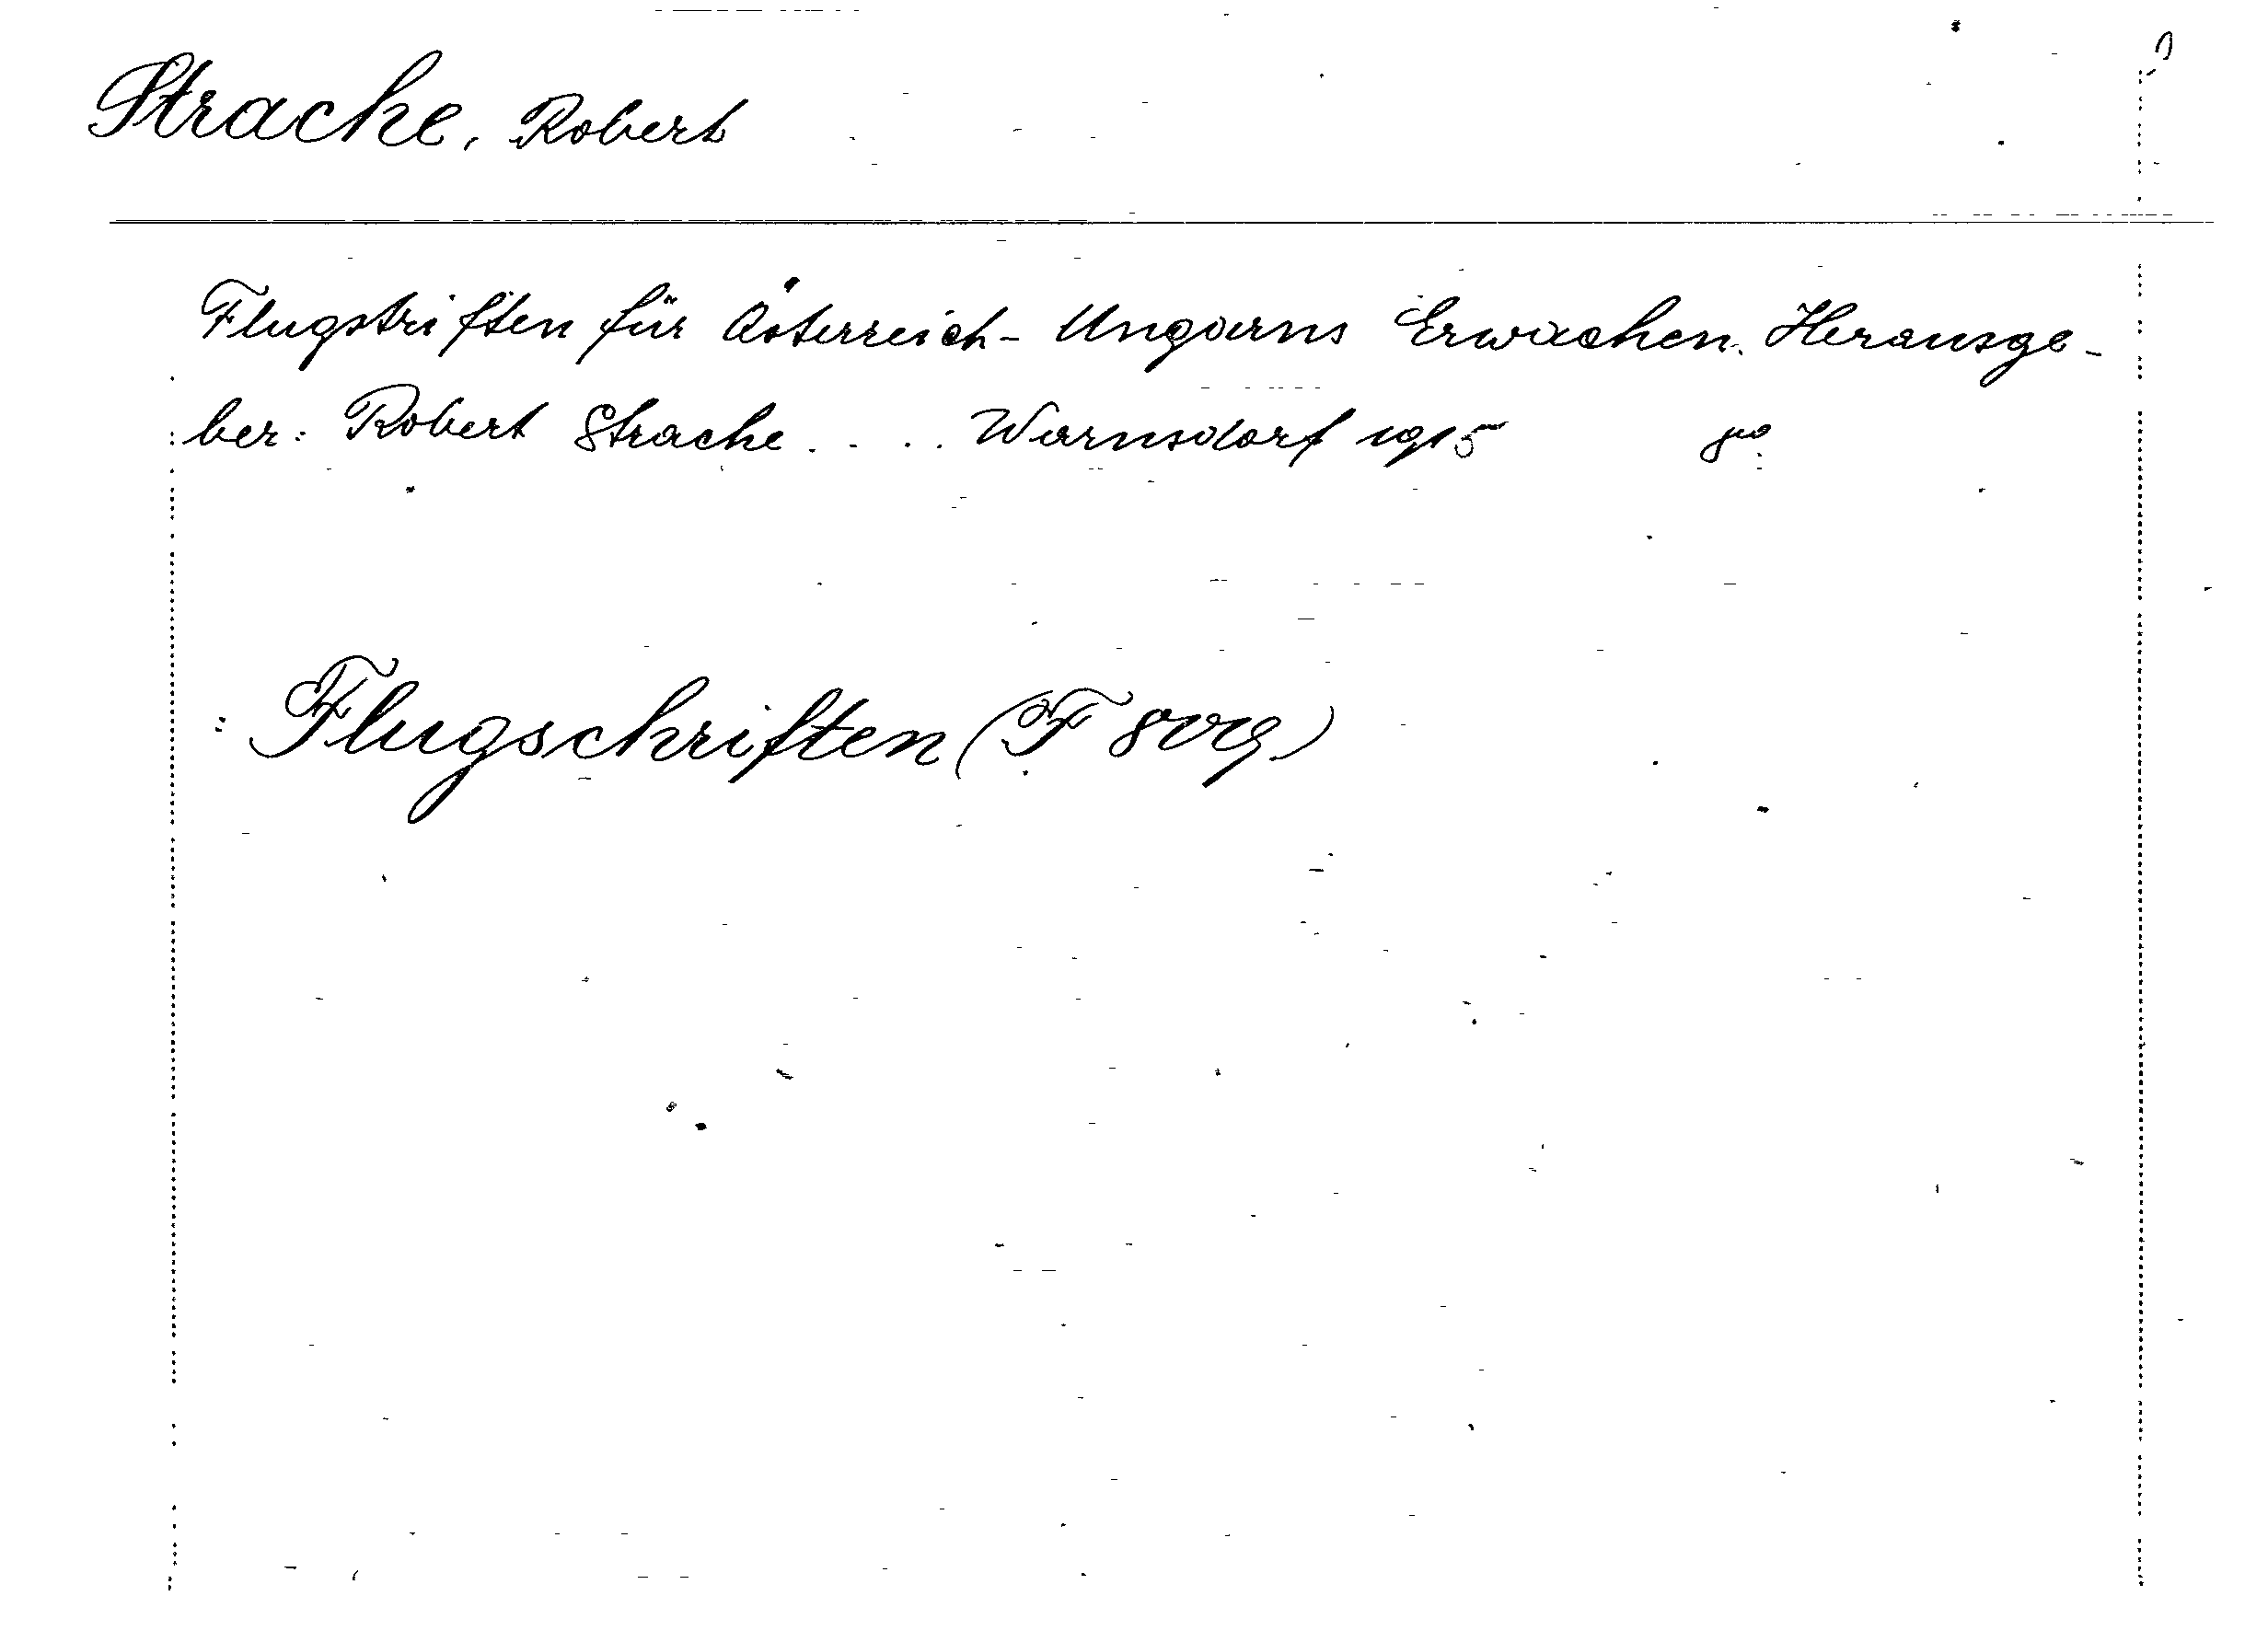 Strache, Robert
Flugstriften für Österreich-Ungarns Erwachen. Herausge-
ber: Robert Strache . . . . Warnsdorf 1915 8°.
: Flugschriften (F